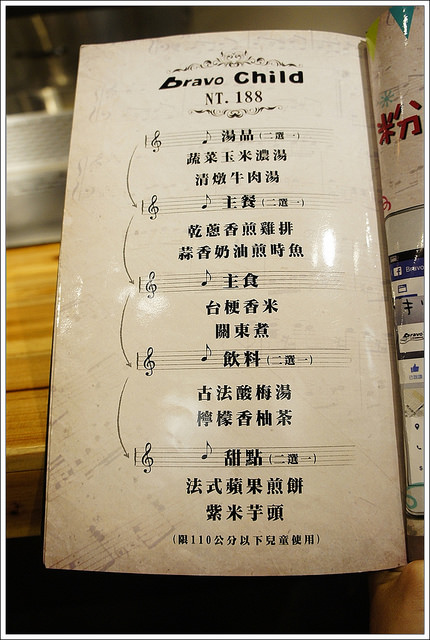 Bravo Child
NT. 188
湯品(二選一)
蔬菜玉米濃湯
清燉牛肉湯
主餐(二選一)
乾蔥香煎雞排
蒜香奶油煎時魚
主食
台梗香米
關東煮
飲料(二選一)
古法酸梅湯
檸檬香柚茶
甜點(二選一)
法式蘋果煎餅
紫米芋頭
(限110公分以下兒童使用)
粉
Bravo